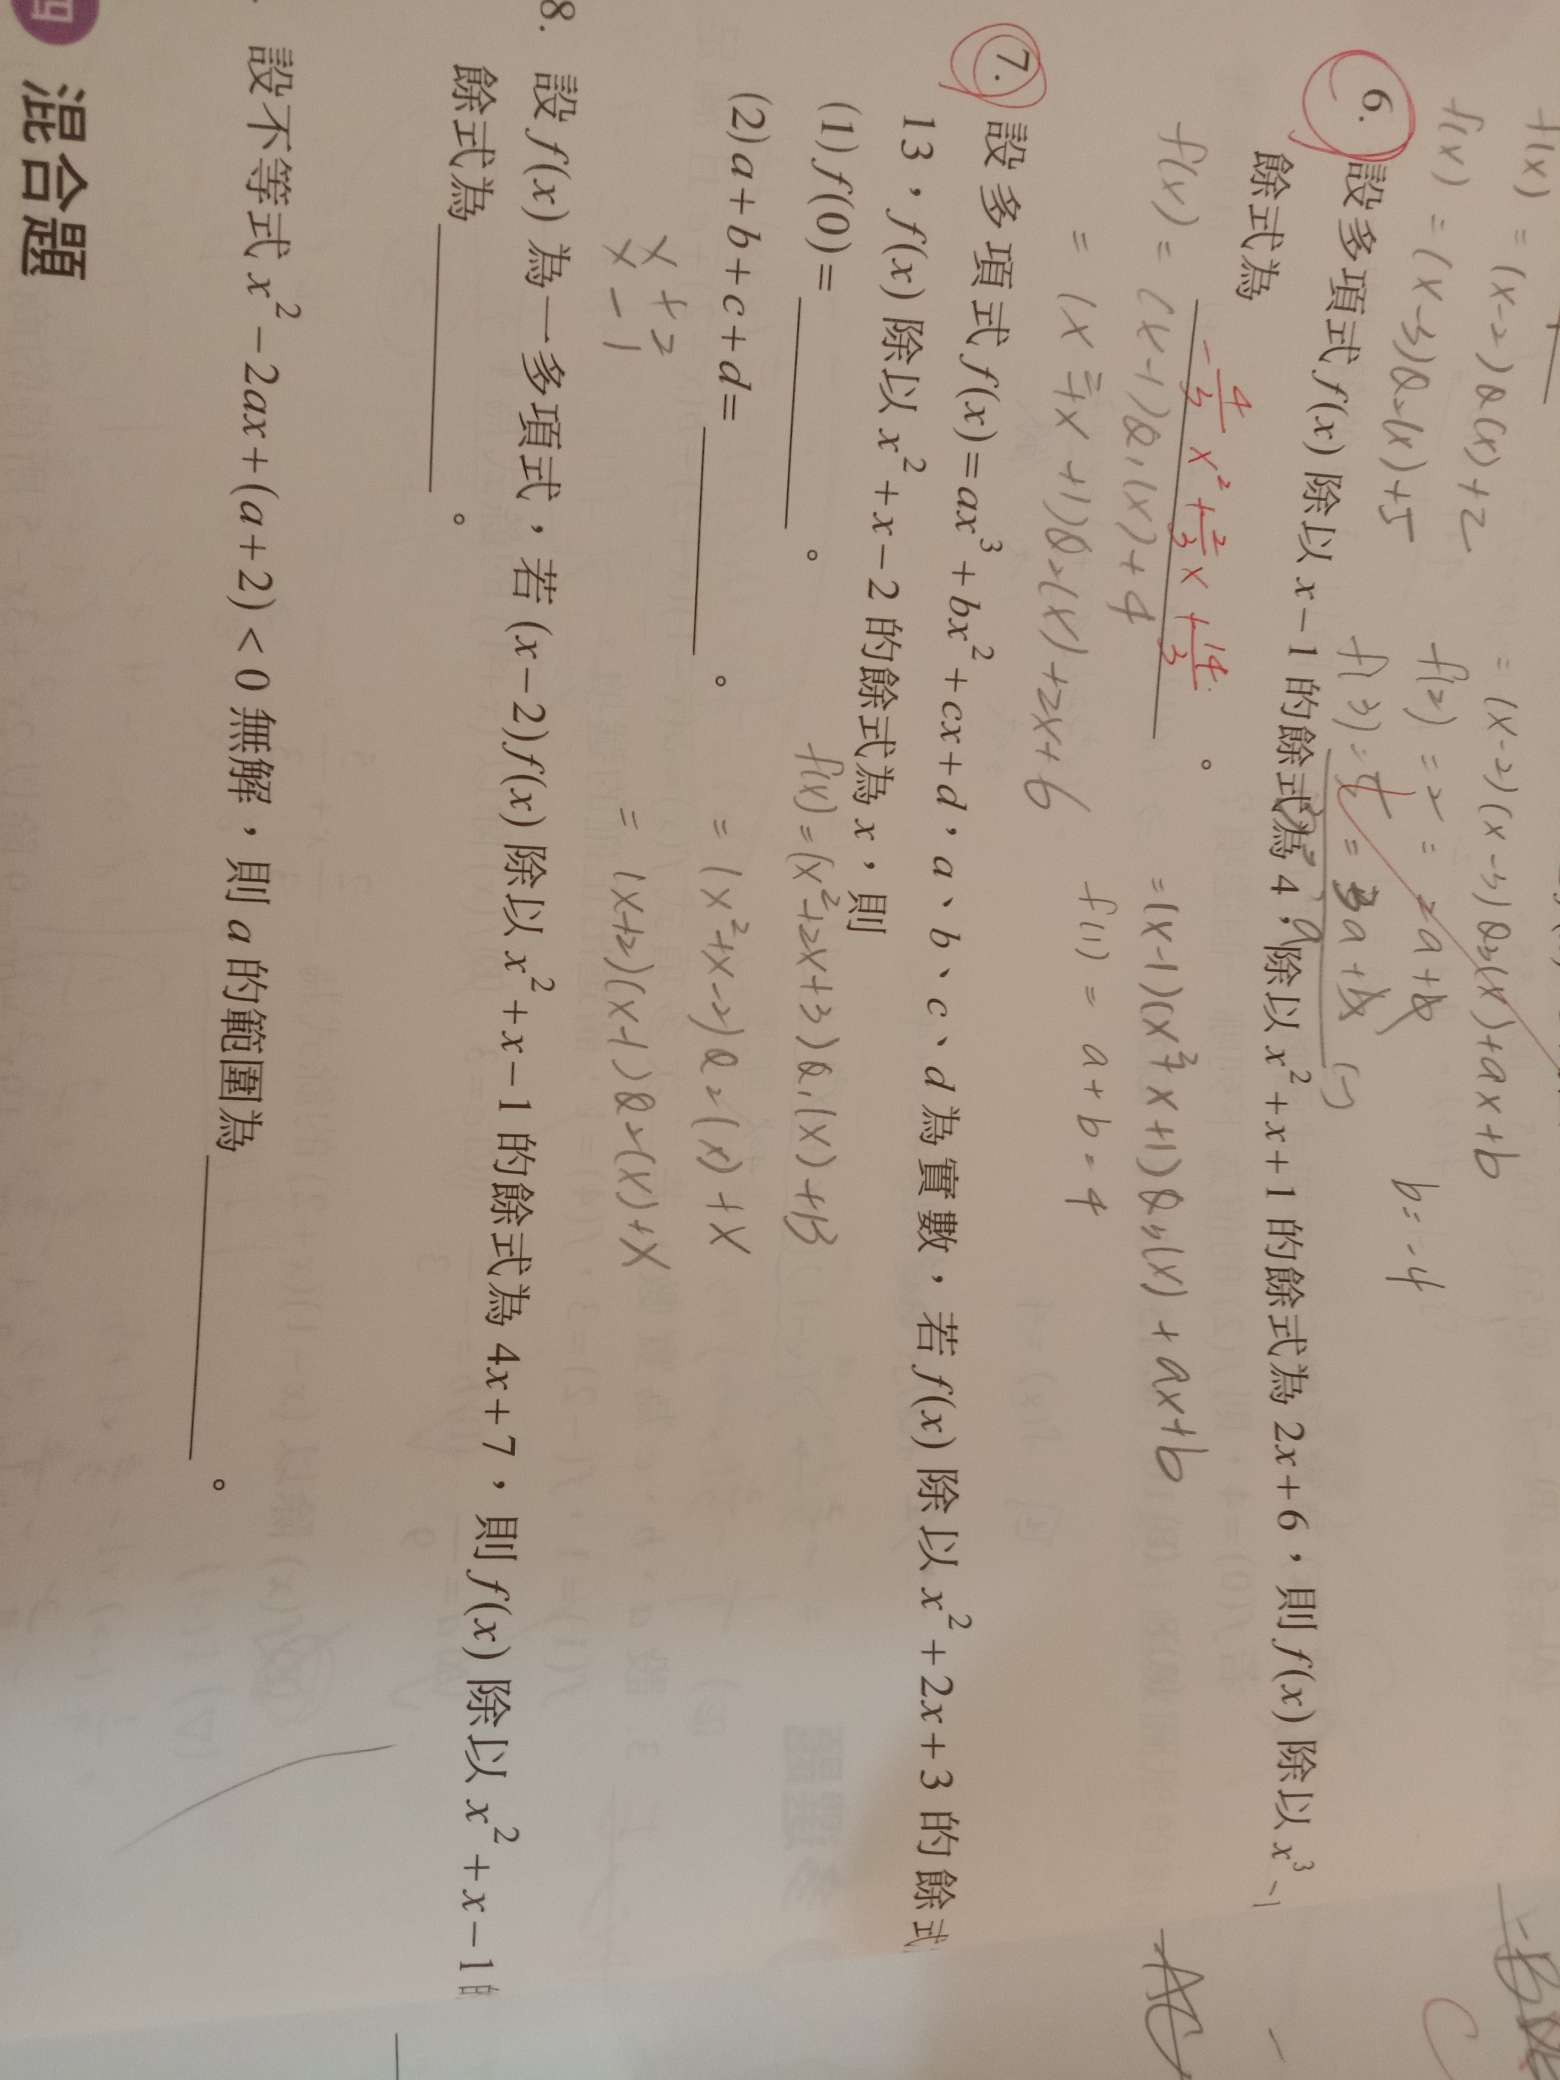 f(x) = (x-2)Q(x)+2
f(x) = (x-3)Q₂(x)+5
= (x-2)(x-3)Q₃(x)+ax+b
f(2) = 2 = 2a+b
b=-4
6. 設多項式 f(x) 除以 x-1 的餘式為 4，除以 x²+x+1 的餘式為 2x+6，則 f(x) 除以 x³-1
餘式為 -4/3 x² + 2/3 x + 14/3 。
f(x) = (x-1)Q₁(x)+4
= (x²+x+1)Q₂(x)+2x+6
= (x-1)(x²+x+1)Q₃(x)+ax+b
f(1) = a+b=4
7. 設多項式 f(x)=ax³+bx²+cx+d，a、b、c、d 為實數，若 f(x) 除以 x²+2x+3 的餘式
13，f(x) 除以 x²+x-2 的餘式為 x，則
(1) f(0)= 。
(2) a+b+c+d= 。
f(x)=(x²+2x+3)Q₁(x)+13
= (x²+x-2)Q₂(x)+x
= (x+2)(x-1)Q₂(x)+x
x +2
x -1
8. 設 f(x) 為一多項式，若 (x-2)f(x) 除以 x²+x-1 的餘式為 4x+7，則 f(x) 除以 x²+x-1
餘式為 。
設不等式 x²-2ax+(a+2)<0 無解，則 a 的範圍為 。
四 混合題